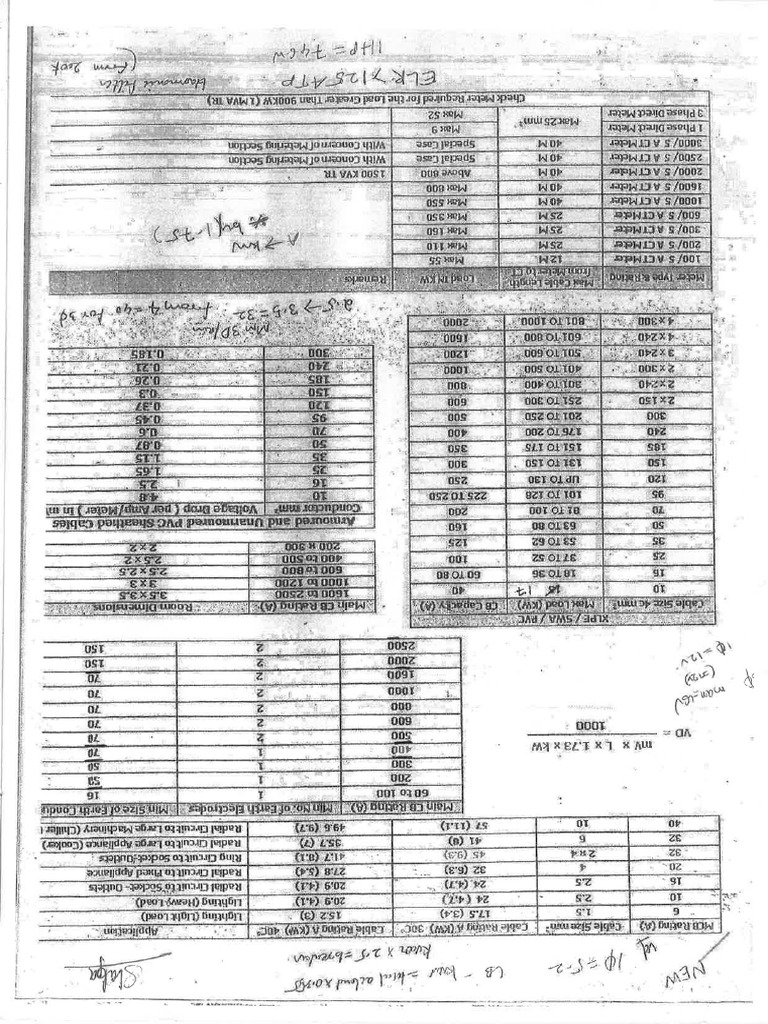 NEW
MCB RATING (A) Cable Size mm² Cable Rating (KW) A 30C° Cable Rating A (KW) 40C° Application
6 1.5 17.5 (3.4) 15.2 (3) Lighting (Light Load)
10 2.5 24 (4.7) 20.9 (4.1) Lighting (Heavy Load)
16 2.5 24 (4.7) 20.9 (4.1) Radial Circuit to Socket - Outlets
20 4 32 (6.3) 27.8 (5.4) Radial Circuit to Fixed Appliance
32 2 x 4 45 (9.3) 41.7 (8.1) Ring Circuit to Socket-Outlets
32 6 41 (8) 35.7 (7) Radial Circuit to Large Appliance (Cooker)
40 10 57 (11.1) 49.6 (9.7) Radial Circuit to Large Machinery (Chiller
Main CB Rating (A) Min No. of Earth Electrodes Min Size of Earth Condu
60 to 100 1 16
200 1 50
300 1 50
400 1 70
500 2 70
600 2 70
800 2 70
1000 2 70
1600 2 70
2000 2 150
2500 2 150
VD = mV x L x 1.73 x kW
1000
XLPE / SWA / PVC
Cable Size 4c mm² Max Load (KW) CB Capacity (A)
10 15 17 40
16 18 TO 36 60 TO 80
25 37 TO 52 100
35 53 TO 62 125
50 63 TO 80 160
70 81 TO 100 200
95 101 TO 128 225 TO 250
120 UP TO 130 250
150 131 TO 150 300
185 151 TO 175 350
240 176 TO 200 400
300 201 TO 250 500
2 x 150 251 TO 300 600
2 x 240 301 TO 400 800
2 x 300 401 TO 500 1000
3 x 240 501 TO 600 1200
4 x 240 601 TO 800 1600
4 x 300 801 TO 1000 2000
Main CB Rating (A) Room Dimensions
1600 to 2500 3.5 x 3.5
1000 to 1200 3 x 3
600 to 800 2.5 x 2.5
400 to 500 2.5 x 2
200 x 300 2 x 2
Armoured and Unarmoured PVC Sheathed Cables
Conductor mm² Voltage Drop ( per Amp/Meter ) in
10 4.8
16 2.5
25 1.65
35 1.15
50 0.87
70 0.6
95 0.45
120 0.37
150 0.3
185 0.26
240 0.21
300 0.185
2.5 → 3.5 = 32
Meter Type & Rating Maxi Cable Length from Meter to CT Load IN KW Remarks
100/ 5 A CT Meter 12 M Max 55
200/ 5 A CT Meter 25 M Max 110
300/ 5 A CT Meter 25 M Max 160
600/ 5 A CT Meter 25 M Max 350
1000/ 5 A CT Meter 40 M Max 550
1600/ 5 A CT Meter 40 M Max 800
2000/ 5 A CT Meter 40 M Above 800 1500 KVA TR
2500/ 5 A CT Meter 40 M Special Case With Concern of Metering Section
3000/ 5 A CT Meter 40 M Special Case With Concern of Metering Section
1 Phase Direct Meter Max 25 mm² Max 9
3 Phase Direct Meter Max 52
Check Meter Required for the Load Greater Than 900KW (1 MVA TR)
A → kW
by (1.75)
1HP = 746W